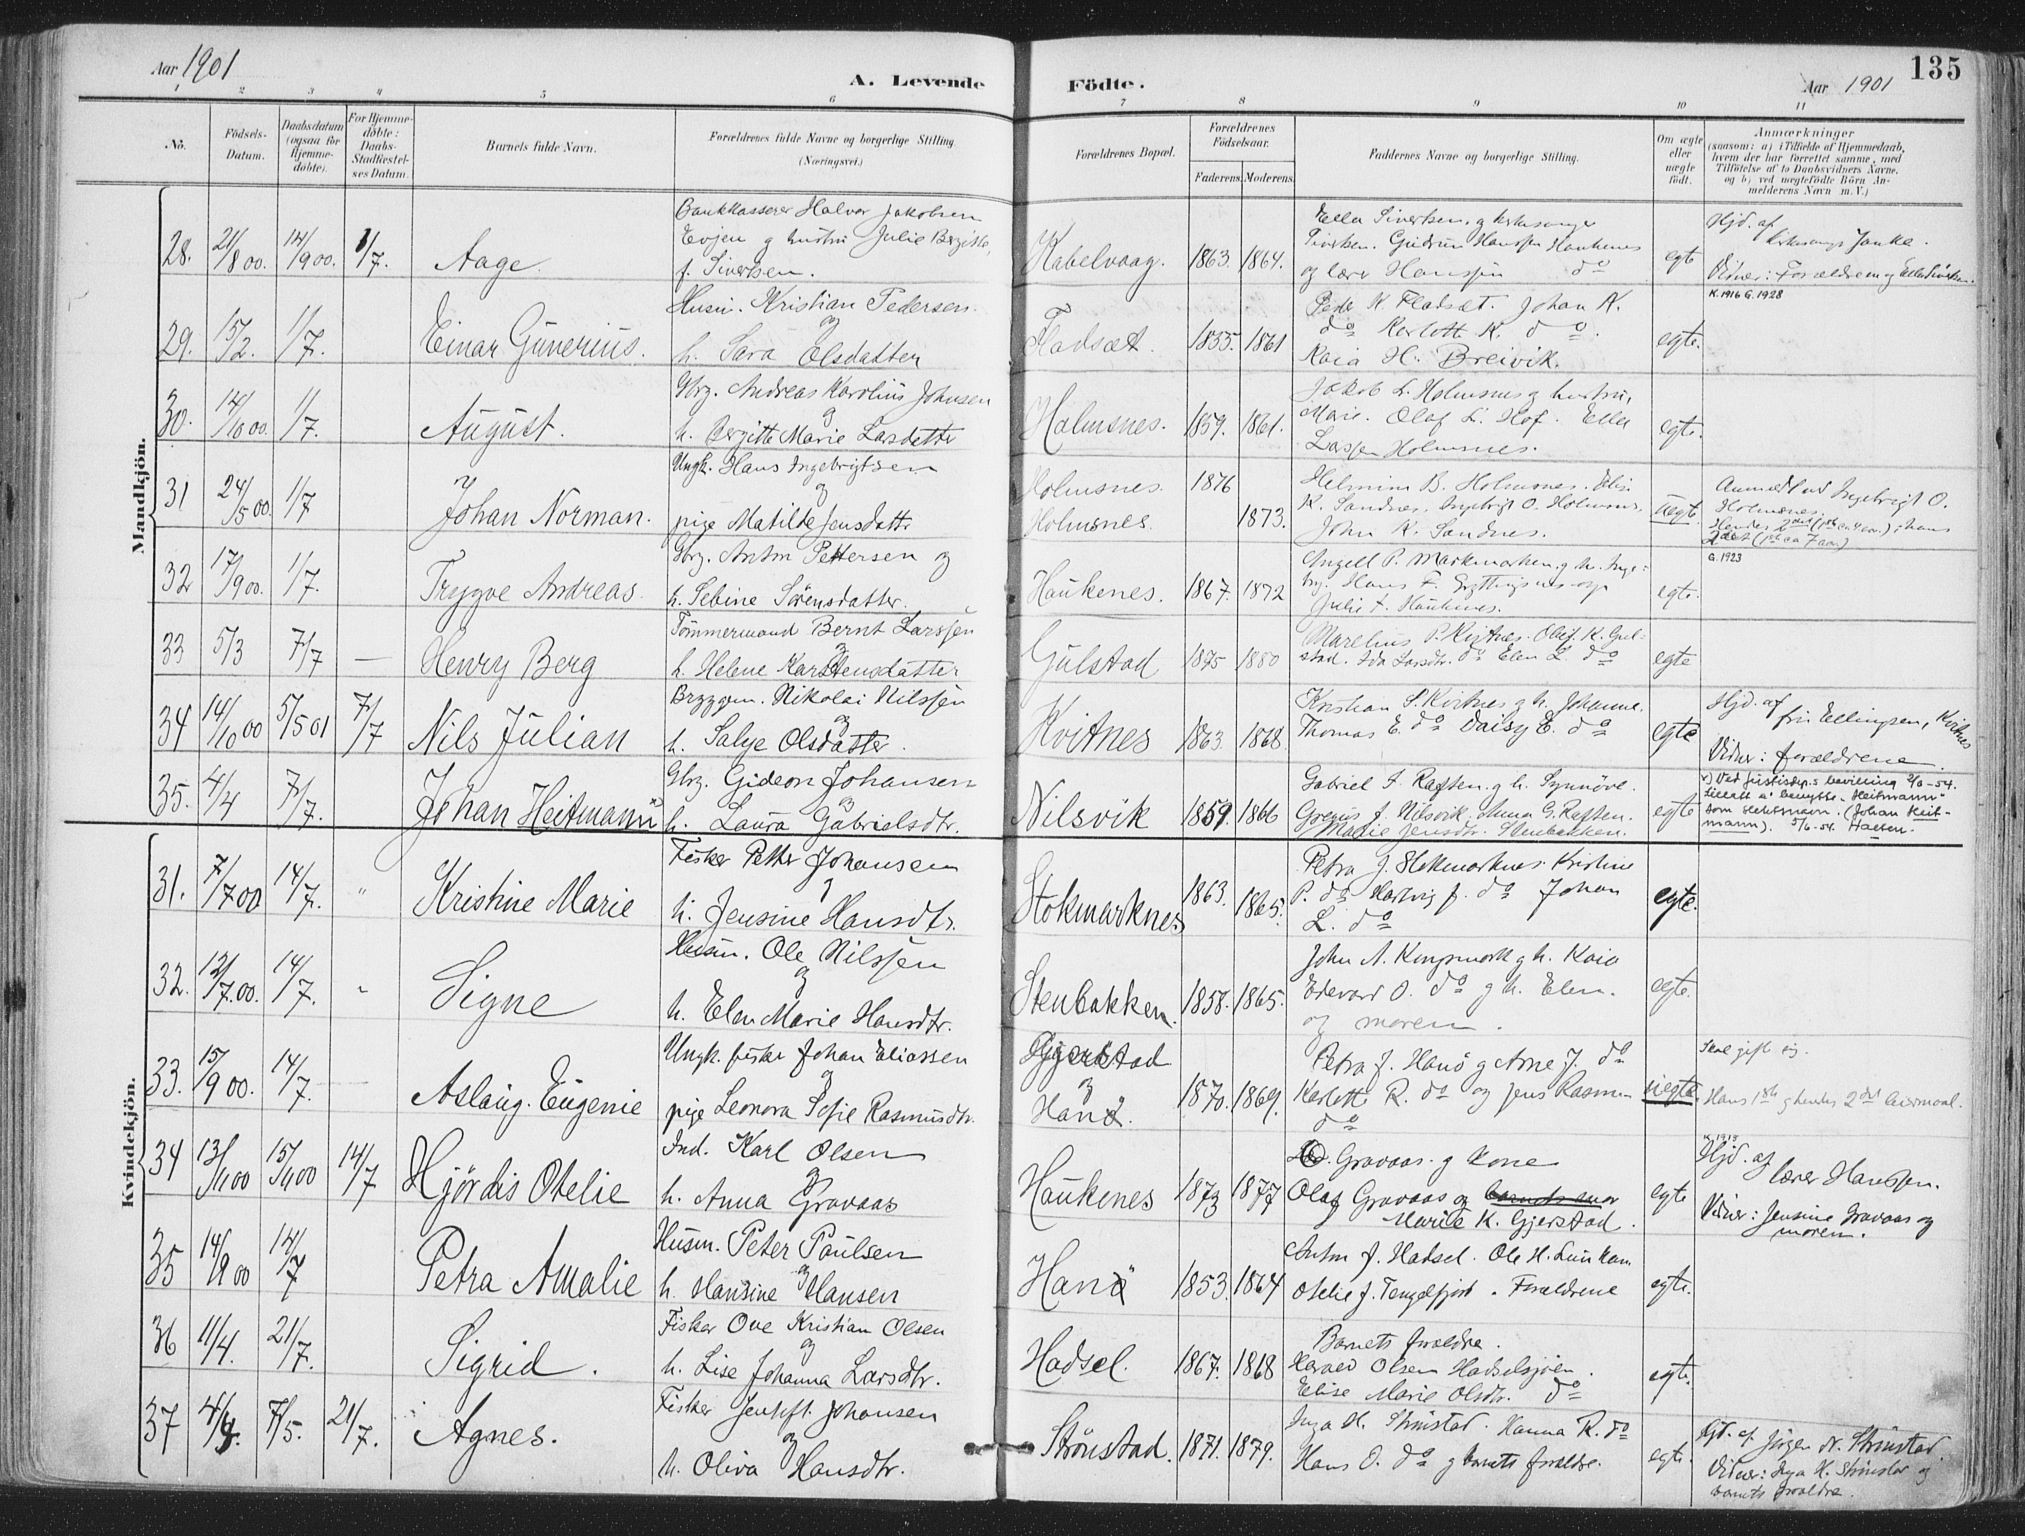 Aar 1901
A. Levende Födte.
Aar 1901
135
1 2 3 4 5 6 7 8 9 10 11
No.
Födsels-
Datum.
Daabsdatum
(ogsaa for
Hjemme-
döbte).
For Hjemme-
döbte:
Daabs-
Stadfæstel-
ses Datum.
Barnets fulde Navn.
Forældrenes fulde Navne og borgerlige Stilling
(Næringsvei.)
Forældrenes Bopæl.
Forældrenes
Födselsaar.
Faderens. Moderens.
Faddernes Navne og borgerlige Stilling.
Om ægte
eller
uægte
født.
Anmærkninger
(saasom: a) i Tilfælde af Hjemmedaab,
hvem der har forrettet samme, med
Tilföielse af to Daabsvidners Navne.
og b) ved uægtefödte Börn An-
melderens Navn m. V.)
Mandkjön.
28. 21/8 00. 14/9 00. 1/7. Aage
Bankkasserer Halvor Jakobsen
Evjen og hustru Julie Bergitte
f. Sivertsen.
Kabelvaag. 1863. 1864.
Ella Sivertsen, g kirkesanger
Sivertsen. Gudrun Hanssen Haukenes
og lærer Hanssen do
egte
Hjd. af
kirkesanger Janke.
Vidner: Forældrene og Ella Sivertsen.
29. 15/2. 1/7. Einar Günerius.
Husm. Kristian Pedersen
og
h. Sara Olsdatter
Fladsæt. 1855. 1861
Peder K. Fladsæt. Johan K.
do Karlott K. do.
Kaia H. Breivik.
egte.
K. 1916 G. 1928
30. 14/10 00. 1/7. August.
Gbrg. Andreas Karolius Johnsen
og
h. Bergitte Marie Larsdatter
Holmsnes. 1859. 1861.
Jakob L. Holmsnes og hustru,
Marie. Olaf L. Hof. Ella
Larssen Holmsnes.
egte.
31 24/5 00. 1/7 Johan Norman.
Ungk. Hans Ingebrigtsen
og
pige Matilde Jensdatter
Holmsnes. 1876
Holmsnes. 1873.
B. Holmsnes.
K. Sandnes, Ingebrigt O. Holmsnes,
John K. Sandnes.
uegte.
Anmeldt ved Ingebrigt O.
Holmsnes.
32 17/9 00. 1/7. Trygve Andreas.
Gbrg. Anton Pettersen og
h. Sebine Sörensdatter.
Haukenes. 1867. 1872
Julie F. Haukenes.
egte.
G. 1923
33 5/3 7/7 — Henry Berg
Tömmermand Bernt Larssen
og
h. Helene Karstensdatter
Gulstad 1875 1880
Marelius P. Kvitnes. Oluf K. Gul-
stad. Ida Larsdtr. do Elen L. do
egte
34 14/10 00 5/5 01 7/7 Nils Julian
Bryggem. Nikolai Nilssen
og
h. Salye Olsdatter.
Kvitnes 1863. 1868.
Kristian S. Kvitnes g h. Johanne.
Thomas E. do Daisy E. do
egte
Hjd. af
fru Ellingsen, Kvitnes
Vidner: forældrene.
35. 4/4 7/7. Johan Heitmann x)
Gbrg. Gideon Johansen
og
h. Laura Gabrielsdtr.
Nilsvik 1859. 1866
Gabriel F. Raften. g h. Synnöve.
Grevius J. Nilsvik. Anna G. Raften.
Marie Jensdtr. Stenbakken.
egte
x) Ved Justisdep.s bevilling 2/6-54.
tillatt å benytte "Heitmann"
som slektsnavn. (Johan Heit-
mann). 5/6-54. Haeten.
Kvindekjön.
31. 7/7 00 14/7. " Kristine Marie
Fisker Petter Johansen
og
h. Jensine Hansdtr.
Stokmarknes 1863. 1865.
Petra J. Stokmarknes. Kristine
P. do Hartvig J. do Johan
L. do
egte.
32. 12/7. 00. 14/7. " Signe
Husm. Ole Nilssen
og
h. Elen Marie Hansdtr.
Stenbakken. 1858. 1865.
John A. Kongsmark g h. Kaia
Edevard O. do g h. Elen.
og moren.
egte.
33. 15/9 00. 14/7. Aslaug. Eugenie
Ungk. fisker Johan Eliassen
og
pige Leonora Sofie Rasmusdtr.
Gjerstad
og
Hanö. 1870. 1869.
Petra J. Hanö g Arne J. do
Karlotte R. do og Jens Rasmu
do
uegte.
Skal gifte sig.
Hans 1ste g hendes 2det leiermaal.
34 13/4 00 15/4 00 14/7 Hjördis Otelie
Ind. Karl Olsen
og
h. Anna Gravaas
Haukenes 1873 1877
O. Gravaas. g kone
Olaf Gravaas og barnets mor
Marie K. Gjerstad.
egte
Hjd. af
lærer Hanssen.
Vidner: Jensine Gravaas og
moren.
35 14/9 00 14/7 Petra Amalie
Husm. Peter Paulsen
og
h. Hansine Hansen
Hanö 1853. 1864
Anton J. Hadsel. Ole H. Lunkan
Otelie J. Tengelfjord. Forældrene
egte.
36 11/4. 21/7. Sigrid.
Fisker Ove Kristian Olsen
og
h. Lise Johanna Larsdtr.
Hadsel. 1867. 1868
Barnets forældre.
Harald Olsen Hadselsjöen.
Elise Marie Olsdtr. do
egte.
37 4/4. 7/5. 21/7. Agnes.
Fisker Jentoft Johansen
og
h. Oliva Hansdtr.
Strönstad. 1871. 1879.
Inga H. Strönstad. Hanna R. do
Hans O. do g barnets forældre.
egte.
Hjd. af Jörgen N. Strönstad
Vidner: Inga H. Strönstad og
barnets forældre.